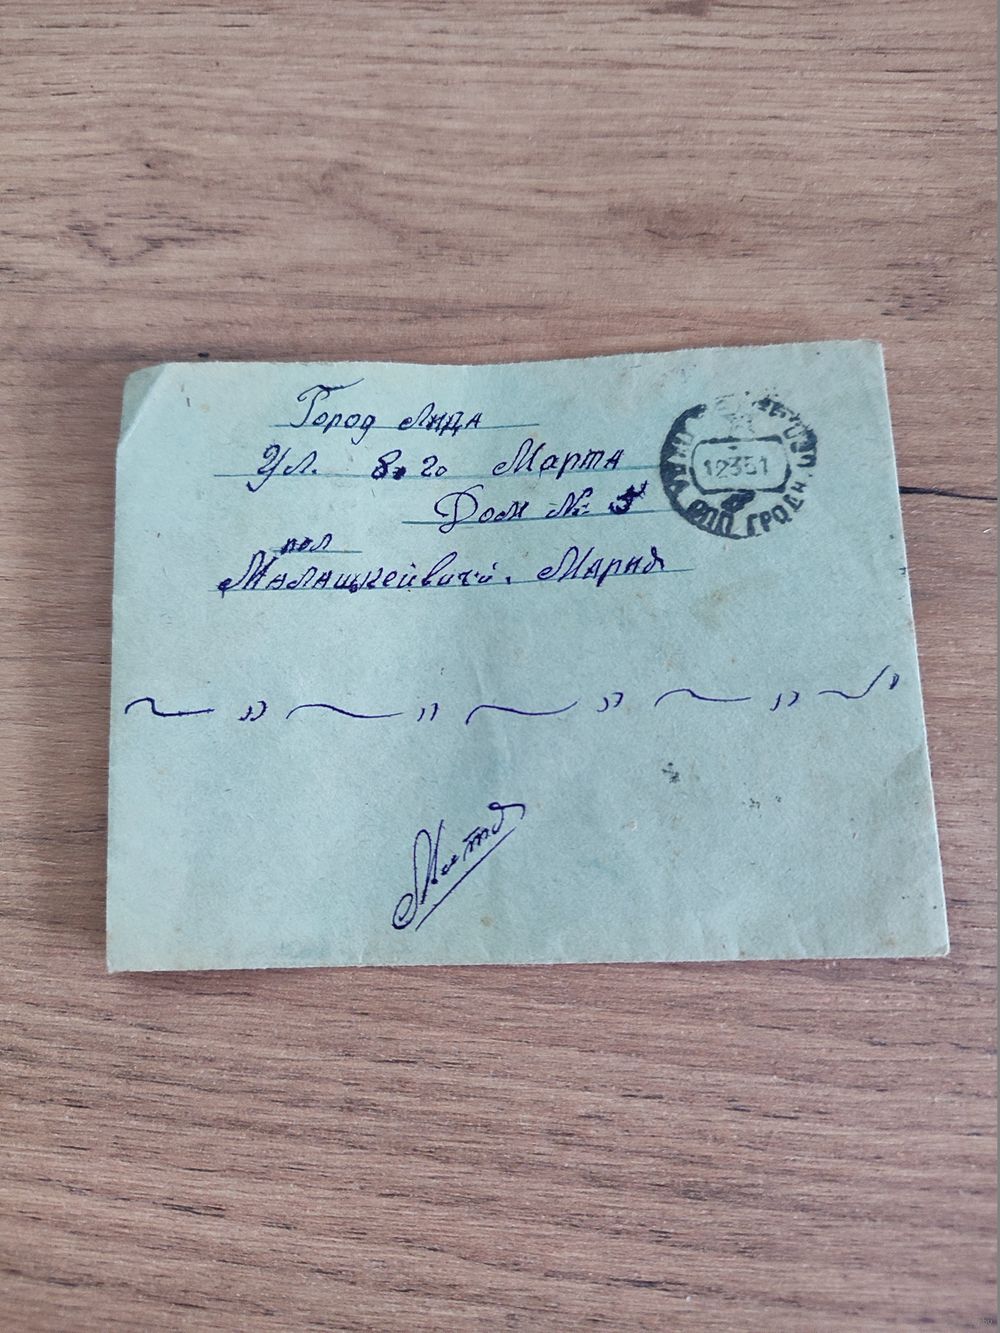 Город Лида
Ул. 8го Марта
Дом №
пол
Малашкейвичй. Мария
12351
ЛИДА ОПП ГРОДН.